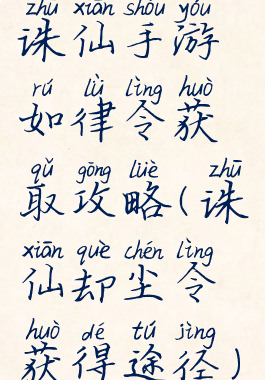 zhū xiān shǒu yóu
诛仙手游
rú lǜ lìng huò
如律令获
qǔ gōng lüè zhū
取攻略(诛
xiān què chén lìng
仙却尘令
huò dé tú jìng
获得途径)